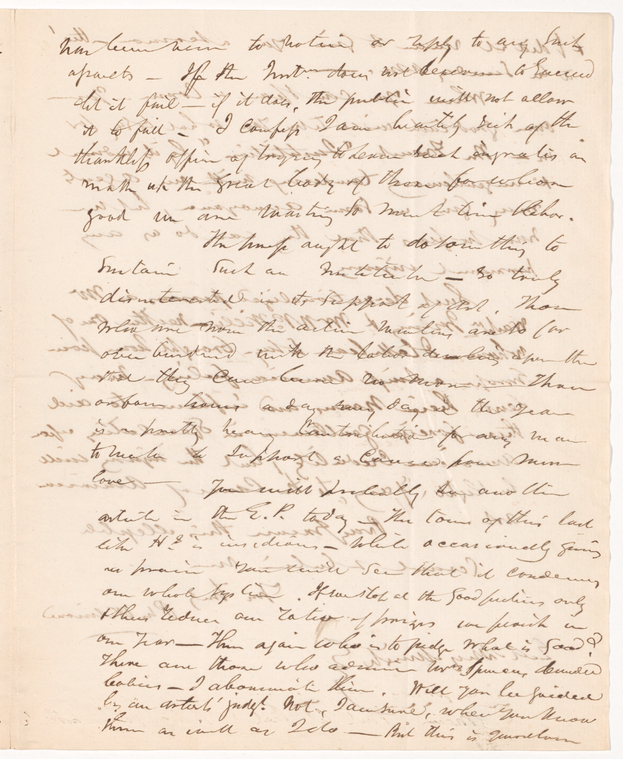 has been seen to notice or reply to any such
assaults — If the Instn does not deserve to succeed
let it fail — if it does, the public will not allow
it to fall — I confess I am heartily sick of the
thankless office of trying to
the great body of them for whom
good one wasting so much time & labor.
The press ought to do something to
sustain such an Institution — so truly
disinterested in its support of art. Those
who are now the active Members are so far
over burdened with the labor upon them
that they can have no more — Three
or four hours a day every day in the year
is a pretty heavy contribution for any man
to make to support a cause from mere
love — You will probably see another
article in the E. P. today — the tone of this last
like H's is insidious — While occasionally giving
us praise you will see that it condemns
our whole system. If we stop at the good pictures only
& thus reduce our ratio of prizes we perish in
one year — Then again who is to judge what is good?
There are those who admire Spencer's
babies — I abominate them. Will you be guided
by an artists' judgt Not, I am sure, when you know
them as well as I do — But this is